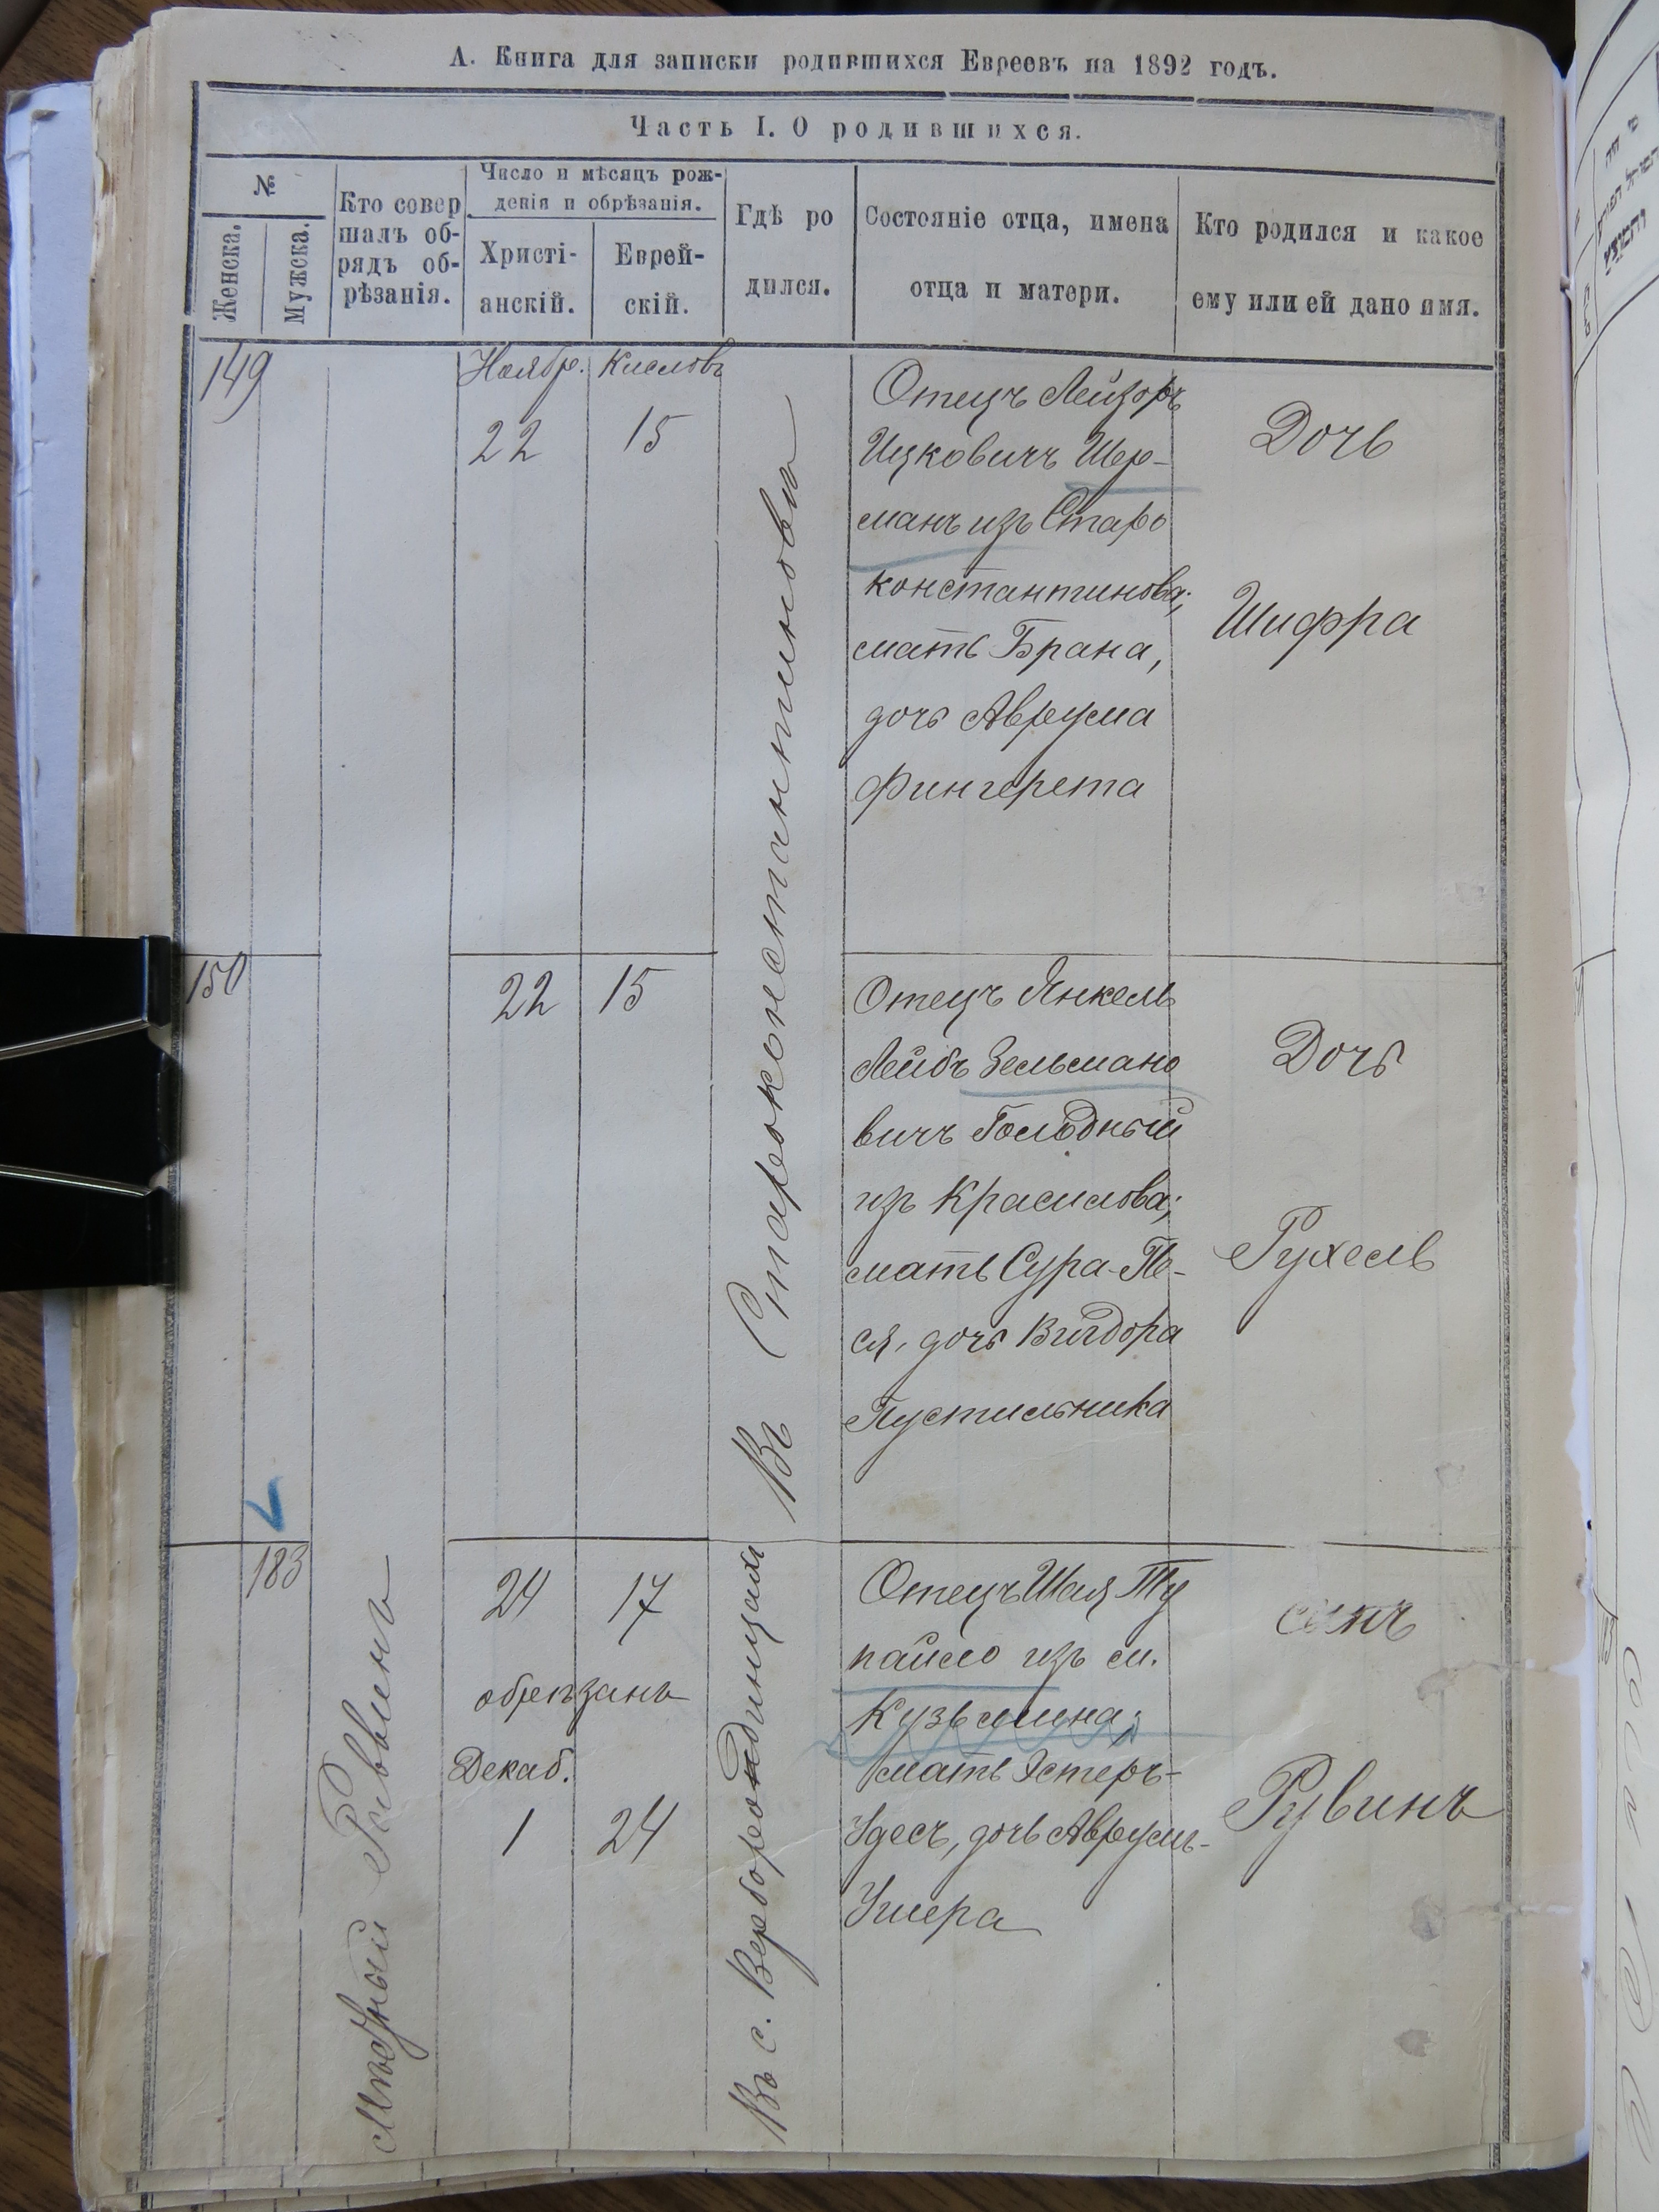 А. Книга для записки родившихся Евреевъ на 1892 годъ.
Часть I. О родившихся.
№
Женска.
Мужска.
Кто совер
шалъ об-
рядъ об-
рѣзанія.
Число и мѣсяцъ рож-
денія и обрѣзанія.
Христі-
анскій.
Еврей-
скій.
Гдѣ ро
дился.
Состояніе отца, имена
отца и матери.
Кто родился и какое
ему или ей дано имя.
149
Ноябр.
22
Кислевъ
15
Въ Староконстантиновѣ
Отецъ Лейзоръ
Ицковичъ Шер-
манъ изъ Старо
константинова;
мать Брана,
дочь Аврума
Фингерета
Дочь
Шифра
150
22
15
Отецъ Янкель
Лейбъ Зельмано
вичъ Гольдный
изъ Красилова;
мать Сура-Пе-
ся, дочь Вигдора
Пустильника
Дочь
Рухель
183
Мѣдный Раввинъ
24
17
обрѣзанъ
Декаб.
1
24
Въ с.
Отецъ Шая Ту
пайло изъ м.
Кузьмина;
мать Эстеръ-
Удесъ, дочь Аврумъ-
Ушера
сынъ
Рувинъ